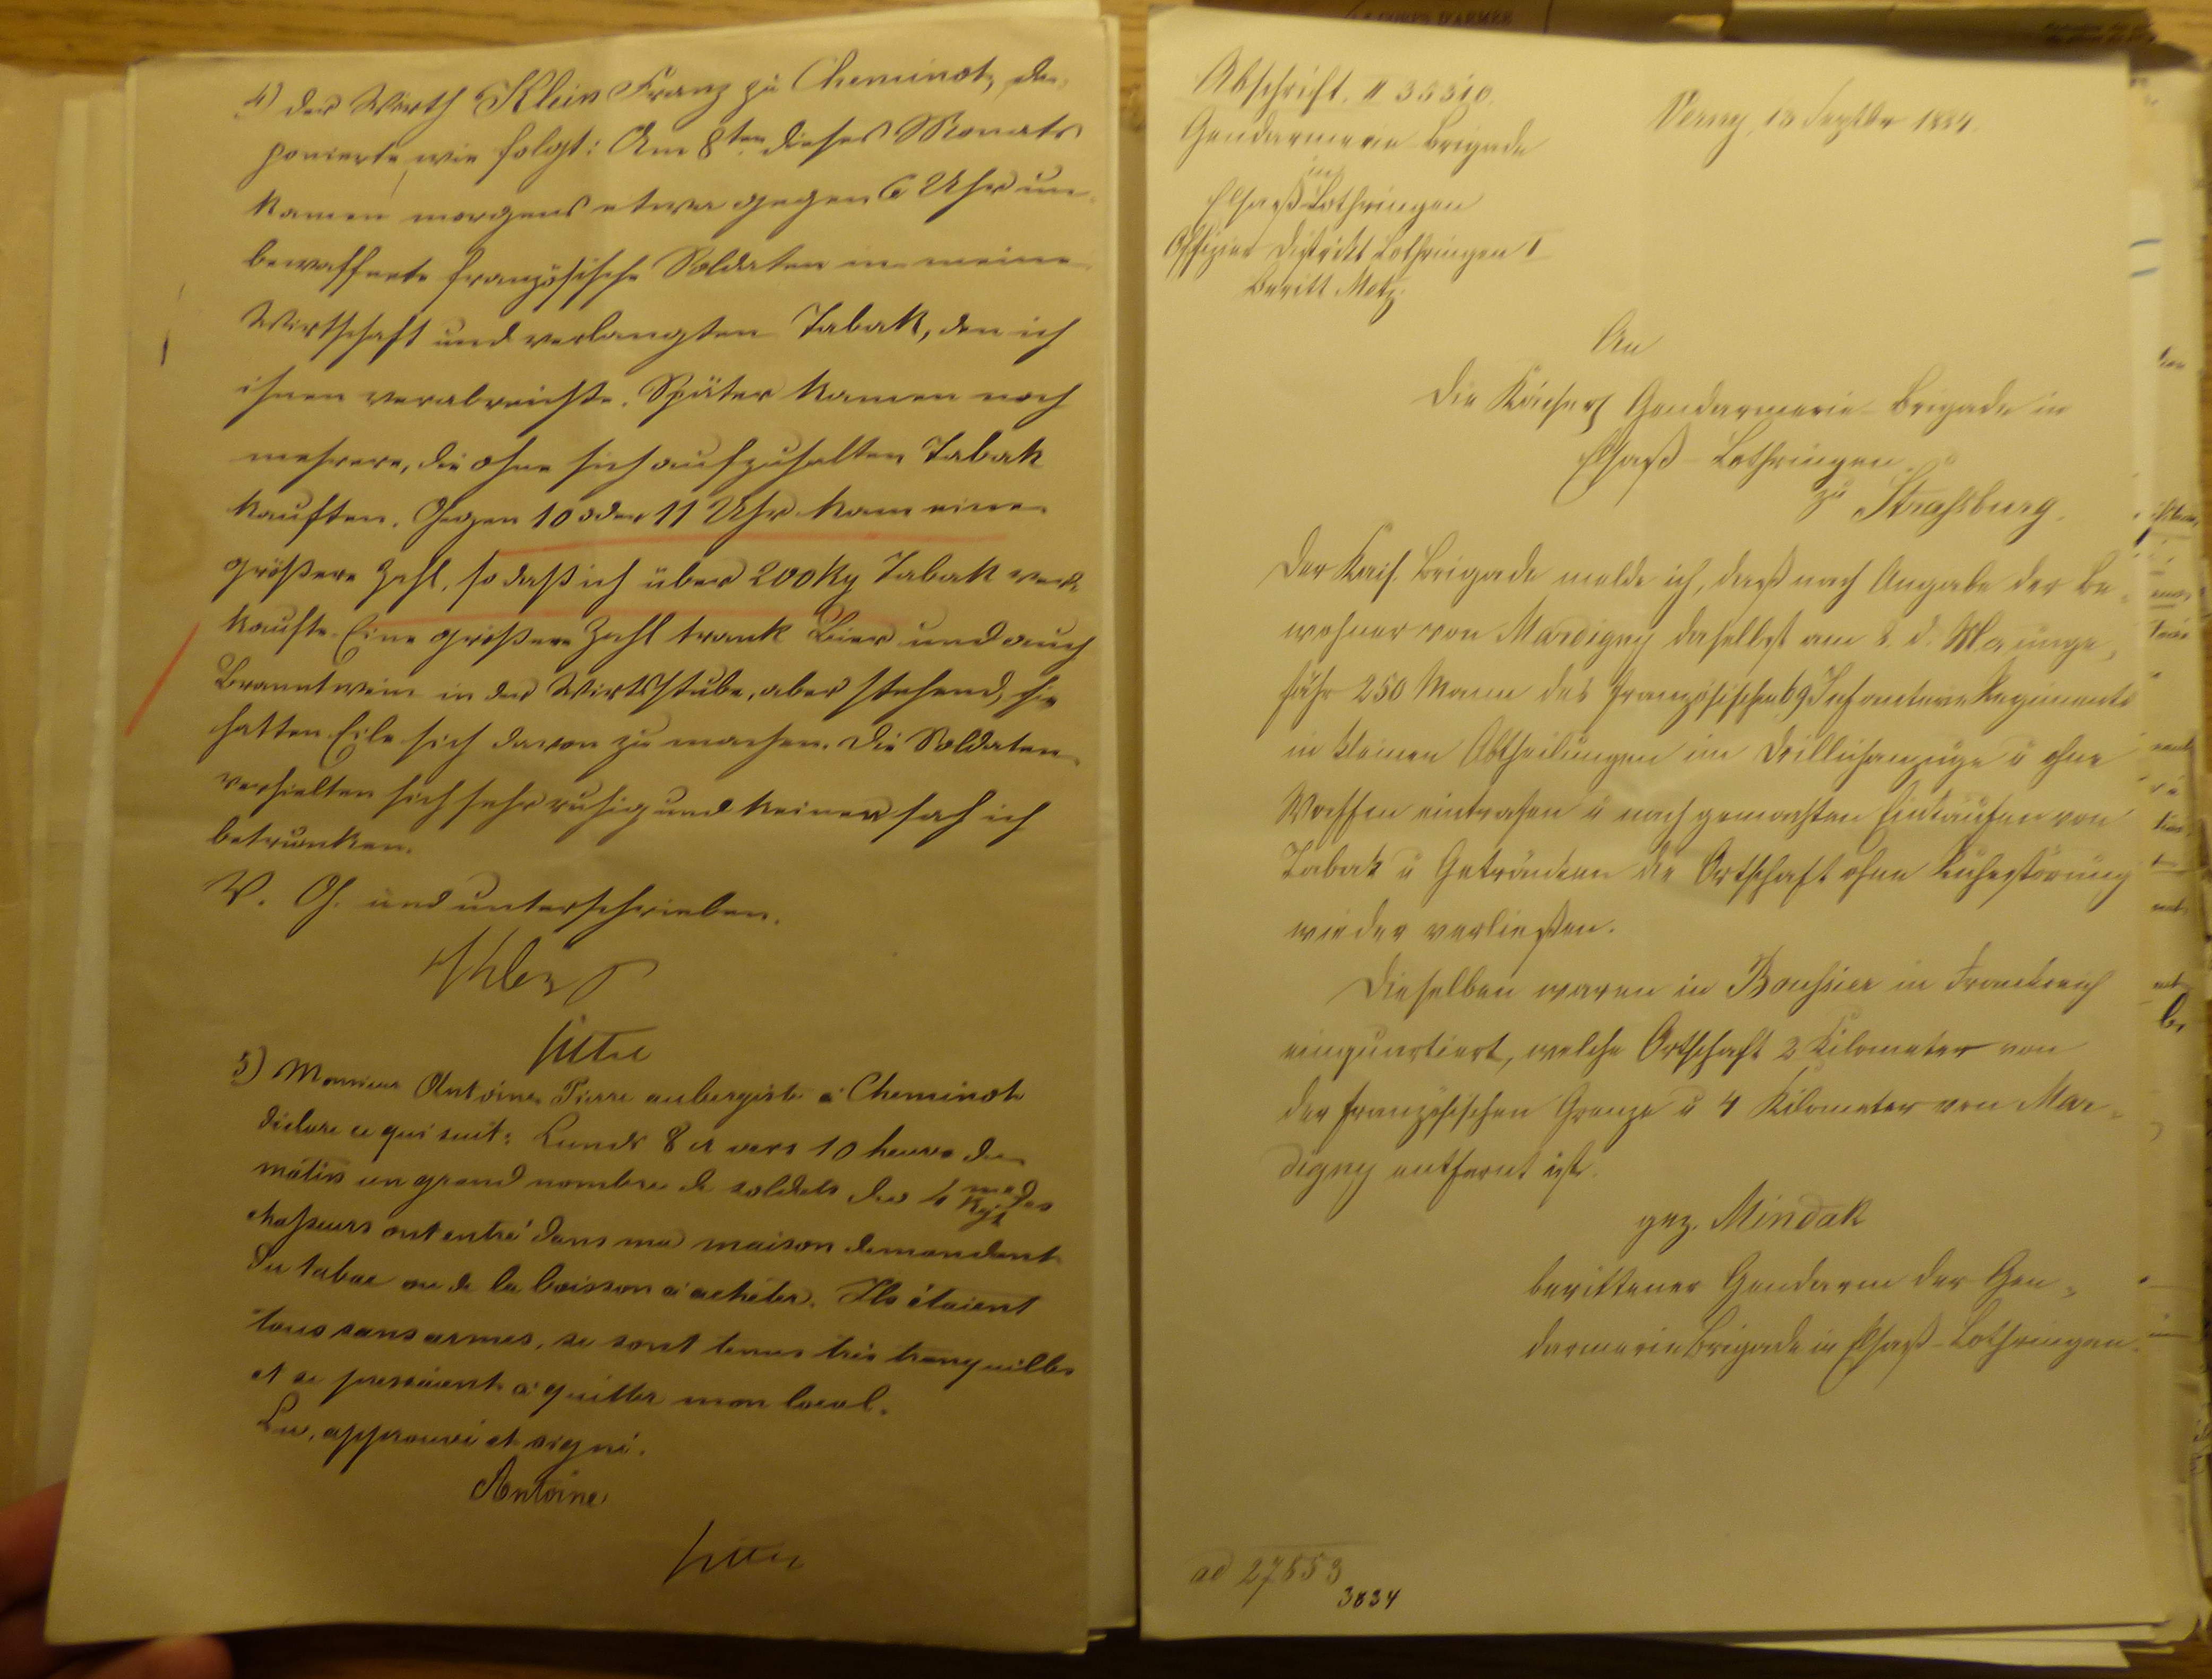 4) der Wirth Klein Franz zu Cheminot, de-
ponierte wie folgt: Am 8ten dieses Monats
kamen morgens etwa gegen 6 Uhr un-
bewaffnete französische Soldaten in meine
Wirtschaft und verlangten Tabak, den ich
ihnen verabreichte. Später kamen noch
mehrere, die ohne sich aufzuhalten Tabak
kauften. Gegen 10 oder 11 Uhr kam eine
größere Zahl, so daß ich über 200 Kg Tabak ver-
kaufte. Eine größere Zahl trank Bier und auch
Branntwein in der Wirthsstube, aber stehend, sie
hatten Eile sich davon zu machen. Die Soldaten
verhielten sich sehr ruhig und keinen sah ich
betrunken.
V. G. und unterschrieben.
5) Monsieur Antoine Pierre aubergiste à Cheminot
déclare ce qui suit: Lundi 8 ct vers 10 heures du
matin un grand nombre de soldats du 4me Rgt des
chasseurs ont entré dans ma maison demandant
du tabac ou de la boisson à acheter. Ils étaient
tous sans armes, se sont tenus très tranquilles
et se pressaient à quitter mon local.
Lu, approuvé et signé.
Antoine
Abschrift. II 35310.
Verny, 13 Septbr 1884.
Gendarmerie-Brigade
in
Elsaß-Lothringen
Offizier-Distrikt Lothringen I
Beritt Metz.
An
die Kaiserl Gendarmerie-Brigade in
Elsaß-Lothringen
zu Strassburg.
Der Kais. Brigade melde ich, daß nach Angabe der Be-
wohner von Mardigny daselbst am 8. d. M. unge-
fähr 250 Mann des französischen 69 Infanterie Regiments
in kleinen Abtheilungen im Drillichanzuge u ohne
Waffen eintrafen u nach gemachten Einkäufen von
Tabak u Getränken die Ortschaft ohne Ruhestörung
wieder verließen.
Dieselben waren in in Frankreich
einquartiert, welche Ortschaft Kilometer von
der französischen Grenze u 4 Kilometer von Mar-
digny entfernt ist.
gez. Mindak
berittener Gendarm der Gen-
darmerie Brigade in Elsaß-Lothringen.
ad 27553
3834